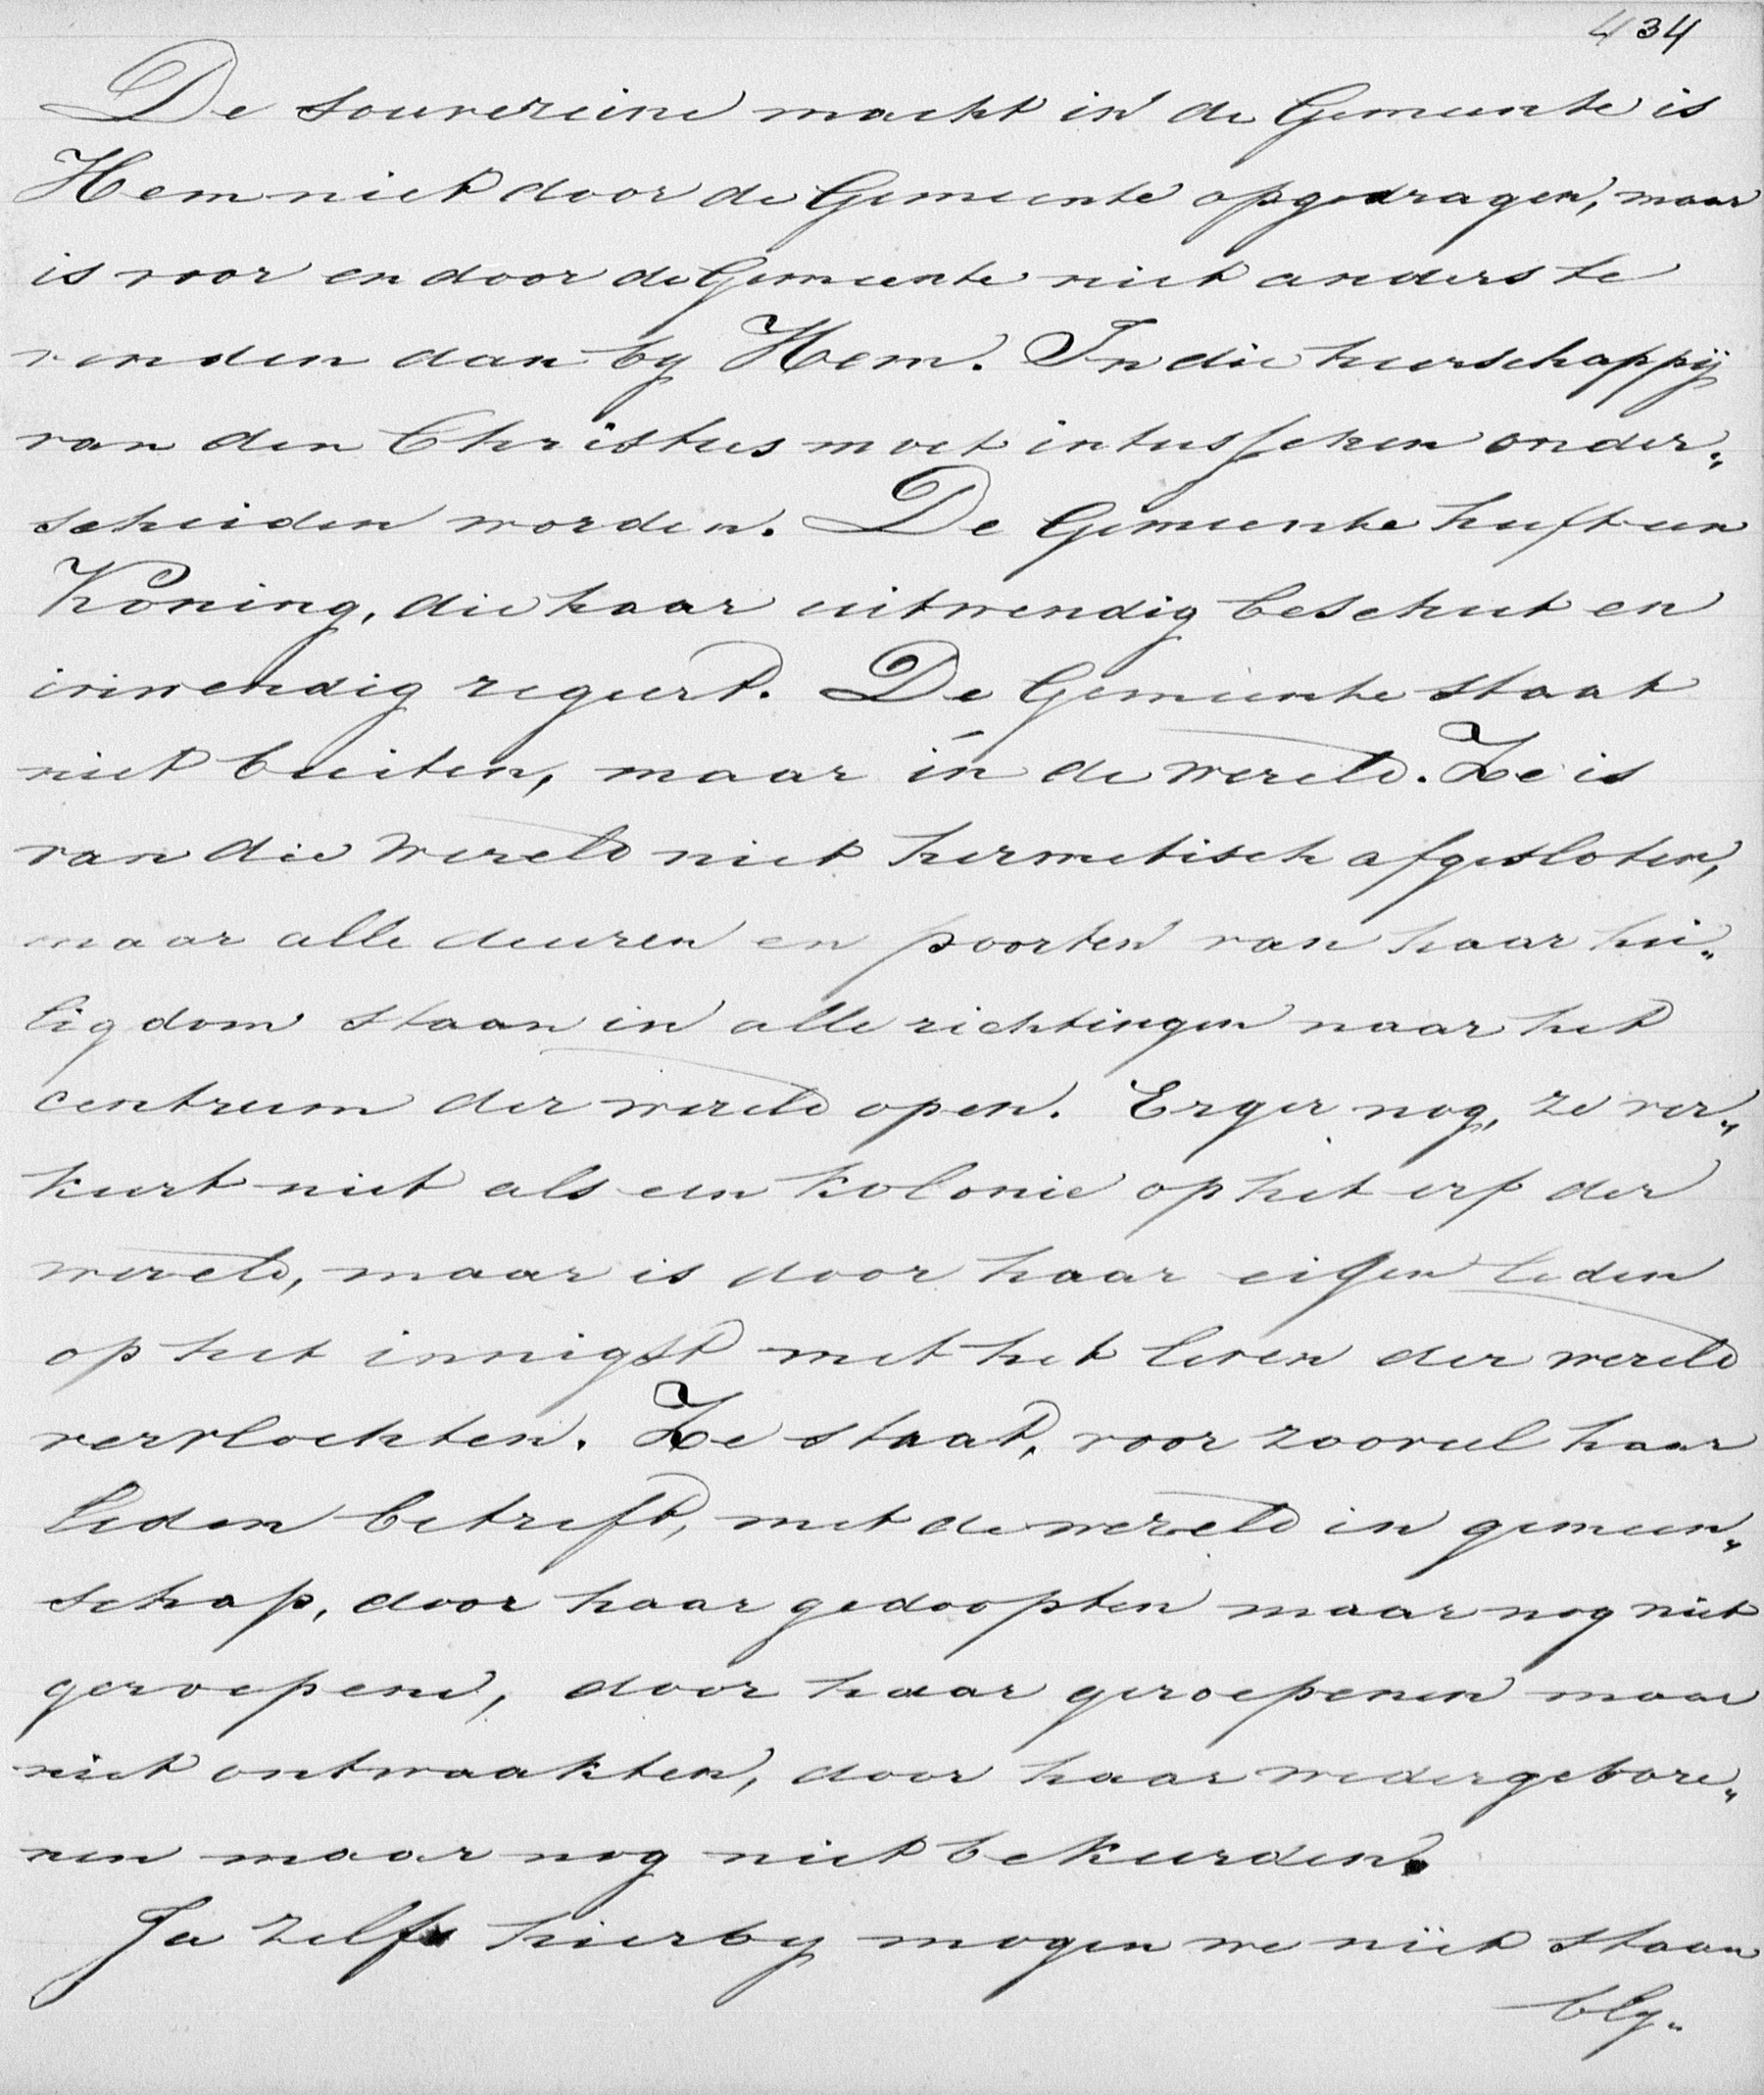 434
De souvereine macht in de Gemeente is
Hem niet door de Gemeente opgedragen, maar
is voor en door de Gemeente niet anders te
vinden dan by Hem. In die heerschappij
van den Christus moet intusschen onder„
scheiden worden. De Gemeente heeft een
Koning, die haar uitwendig beschut en
inwendig regeert. De Gemeente staat
niet buiten, maar ín de wereld. Ze is
van die wereld niet hermetisch afgesloten,
maar alle deuren en poorten van haar hei„
ligdom staan in alle richtingen naar het
centrum der wereld open. Erger nog, ze ver„
keert niet als een kolonie op het erf der
wereld, maar is door haar eigen leden
op het innigst met het leven der wereld
vervlochten. Ze staat, voor zooveel haar
leden betreft, met de wereld in gemeen„
schap, door haar gedoopten maar nog niet
geroepene, door haar geroepenen maar
niet ontwaakten, door haar wedergebore„
nen maar nog niet bekeerden.
Ja zelfs hierby mogen we niet staan
bly„